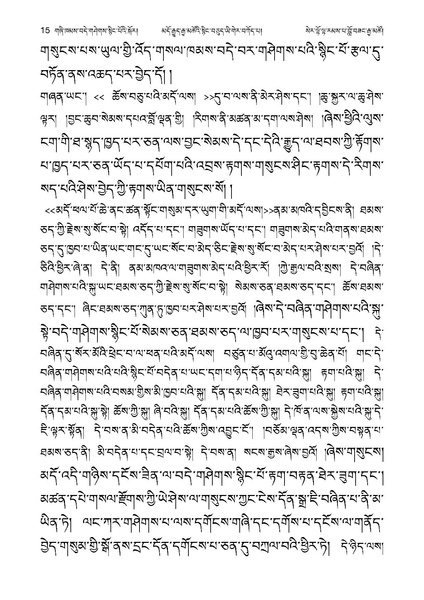 15 གཞི་ཁམས་བདེ་གཤེགས་སྙིང་པོའི་སྐོར།
གསུངས་པས་ཡུལ་གྱི་འོད་གསལ་ཁམས་བདེ་བར་གཤེགས་པའི་སྙིང་པོ་རྩལ་དུ་
བཏོན་ནས་འཆད་པར་བྱེད་དོ། །
གཞན་ཡང་། << ཆོས་བཅུ་པའི་མདོ་ལས། >>དུ་བ་ལས་ནི་མེར་ཤེས་དང་། །ཆུ་སྐྱར་ལ་ཆུ་ཤེས་
ལྟར། །བྱང་ཆུབ་སེམས་དཔའ་བློ་ལྡན་གྱི། །རིགས་ནི་མཚན་མ་དག་ལས་ཤེས། །ཞེས་ཕྱིའི་ལུས་
ངག་གི་ཐ་སྙད་ཁྱད་པར་ཅན་ལས་བྱང་སེམས་དེ་དང་དེའི་རྒྱུད་ལ་ཐབས་ཀྱི་རྟོགས་
པ་ཁྱད་པར་ཅན་ཡོད་པ་དཔོག་པའི་འབྲས་རྟགས་གསུངས་ཤིང་རྟགས་དེ་རིགས་
སད་པའི་ཤེས་བྱེད་ཀྱི་རྟགས་ཡིན་གསུངས་སོ། །
<<མདོ་ཕལ་པོ་ཆེ་ནང་ཚན་སྟོང་གསུམ་དར་ཡུག་གི་མདོ་ལས།>>ནམ་མཁའི་དབྱིངས་ནི། ཐམས་
ཅད་ཀྱི་རྗེས་སུ་སོང་བ་སྟེ། འདོད་པ་དང་། གཟུགས་ཡོད་པ་དང་། གཟུགས་མེད་པའི་གནས་ཐམས་
ཅད་དུ་ཁྱབ་པ་ཡིན་ཡང་གང་དུ་ཡང་སོང་བ་མེད་ཅིང་རྗེས་སུ་སོང་བ་མེད་པར་ཤེས་པར་བྱའོ། །དེ་
ཅིའི་ཕྱིར་ཞེ་ན། དེ་ནི། ནམ་མཁའ་ལ་གཟུགས་མེད་པའི་ཕྱིར་རོ། །ཀྱེ་རྒྱལ་བའི་སྲས། དེ་བཞིན་
གཤེགས་པའི་སྐུ་ཡང་ཐམས་ཅད་ཀྱི་རྗེས་སུ་སོང་བ་སྟེ། སེམས་ཅན་ཐམས་ཅད་དང་། ཆོས་ཐམས་
ཅད་དང་། ཞིང་ཐམས་ཅད་ཀུན་ཏུ་ཁྱབ་པར་ཤེས་པར་བྱའོ། །ཞེས་དེ་བཞིན་གཤེགས་པའི་སྐུ་
སྟེ་བདེ་གཤེགས་སྙིང་པོ་སེམས་ཅན་ཐམས་ཅད་ལ་ཁྱབ་པར་གསུངས་པ་དང་། དེ་
བཞིན་དུ་སོར་མོའི་ཕྲེང་བ་ལ་ཕན་པའི་མདོ་ལས། བཙུན་པ་མོའུ་འགལ་གྱི་བུ་ཆེན་པོ། གང་དེ་
བཞིན་གཤེགས་པའི་པའི་སྙིང་པོ་བདེན་པ་ཡང་དག་པ་ཉིད་དོན་དམ་པའི་སྐུ། རྟག་པའི་སྐུ། དེ་
བཞིན་གཤེགས་པའི་བསམ་གྱིས་མི་ཁྱབ་པའི་སྐུ། དོན་དམ་པའི་སྐུ། ཐེར་ཟུག་པའི་སྐུ། རྟག་པའི་སྐུ།
དོན་དམ་པའི་སྐུ་སྟེ། ཆོས་ཀྱི་སྐུ། ཞི་བའི་སྐུ། དོན་དམ་པའི་ཆོས་ཀྱི་སྐུ། དེ་ཁོ་ན་ལས་སྐྱེས་པའི་སྐུ་དེ་
ཇི་ལྟར་སྟོན། དེ་བས་ན་མི་བདེན་པའི་ཆོས་ཀྱིས་འབྱུང་ངོ་། །བཅོམ་ལྡན་འདས་ཀྱིས་བསྟན་པ་
ཐམས་ཅད་ནི། མི་བདེན་པ་དང་བྲལ་བ་སྟེ། དེ་བས་ན། སངས་རྒྱས་ཞེས་བྱའོ། །ཞེས་གསུངས།
མདོ་འདི་གཉིས་དངོས་ཟིན་ལ་བདེ་གཤེགས་སྙིང་པོ་རྟག་བརྟན་ཐེར་ཟུག་དང་།
མཚན་དཔེ་གསལ་རྫོགས་ཀྱི་ཡེ་ཤེས་ལ་གསུངས་ཀྱང་ངེས་དོན་སྒྲ་ཇི་བཞིན་པ་ནི་མ་
ཡིན་ཏེ། ལང་ཀར་གཤེགས་པ་ལས་དགོངས་གཞི་དང་དགོས་པ་དངོས་ལ་གནོད་
བྱེད་གསུམ་གྱི་སྒོ་ནས་དྲང་དོན་དགོངས་པ་ཅན་དུ་བཀྲལ་བའི་ཕྱིར་ཏེ། དེ་ཉིད་ལས།